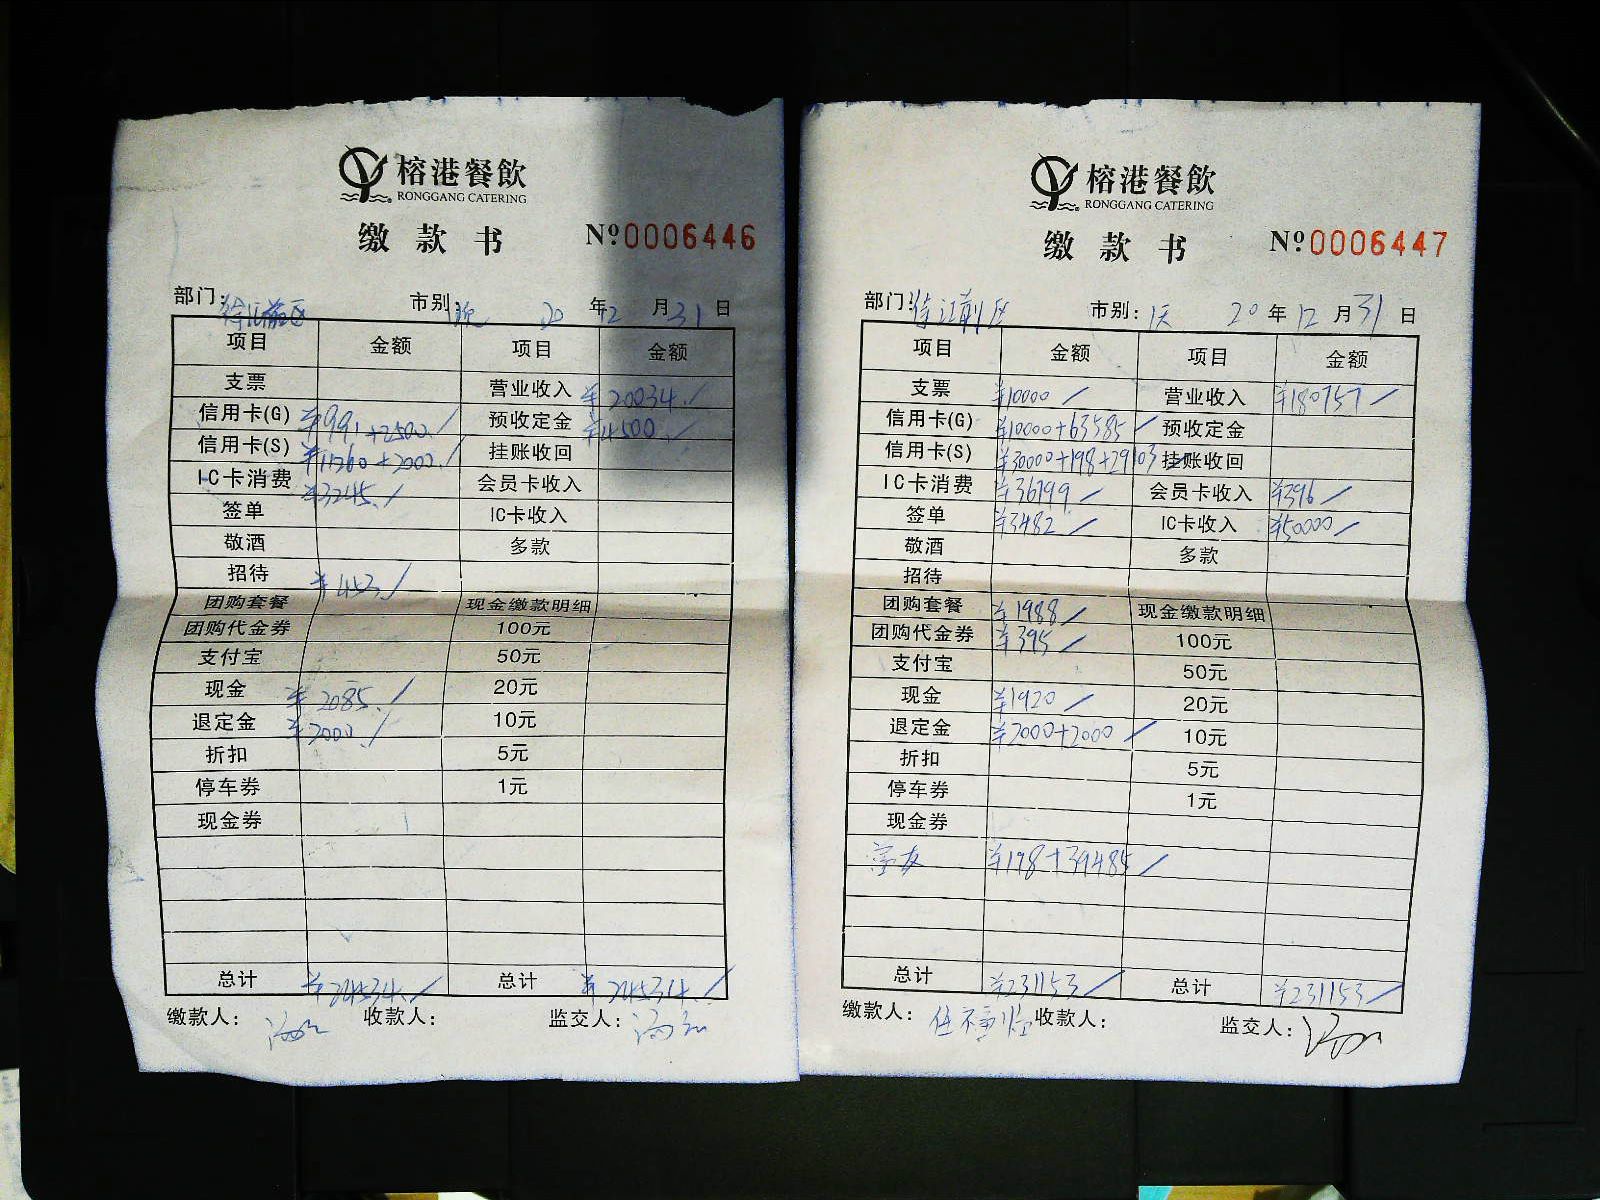 榕港餐飲
RONGGANG CATERING
缴款书 №0006446
部门: 徐汇前区 市别: 晚 20 年 12 月 31 日
项目 金额 项目 金额
支票 营业收入 ¥20034.
信用卡(G) ¥991+2500. 预收定金 ¥4500.
信用卡(S) ¥11260+2000. 挂账收回
IC卡消费 ¥3245. 会员卡收入
签单 IC卡收入
敬酒 多款
招待 ¥453.
团购套餐 现金缴款明细
团购代金券 100元
支付宝 50元
现金 ¥2085. 20元
退定金 ¥2000. 10元
折扣 5元
停车券 1元
现金券
总计 ¥24534. 总计 ¥24534.
缴款人: 收款人: 监交人:
榕港餐飲
RONGGANG CATERING
缴款书 №0006447
部门: 徐汇前区 市别: 天 20 年 12 月 31 日
项目 金额 项目 金额
支票 ¥10000 营业收入 ¥180757
信用卡(G) ¥10000+63585 预收定金
信用卡(S) ¥30000+198+29103 挂账收回
IC卡消费 ¥36799 会员卡收入 ¥396
签单 ¥3482 IC卡收入 ¥50000
敬酒 多款
招待
团购套餐 ¥1988 现金缴款明细
团购代金券 ¥395 100元
支付宝 50元
现金 ¥1920 20元
退定金 ¥2000+2000 10元
折扣 5元
停车券 1元
现金券
¥198+39485
总计 ¥231153 总计 ¥231153
缴款人: 收款人: 监交人: